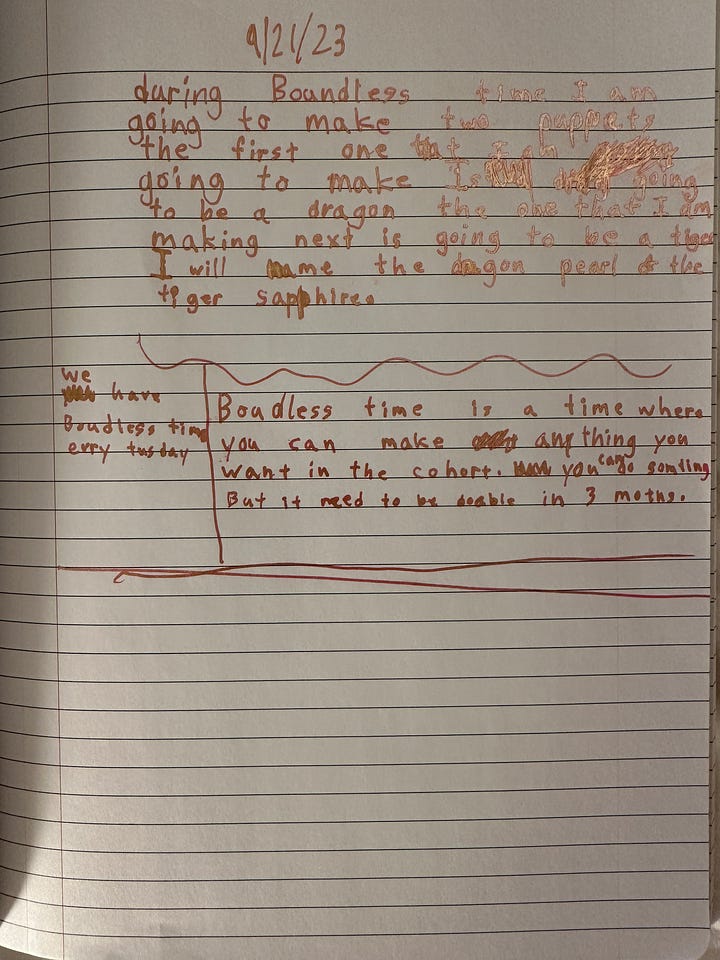 9/21/23
during Boundless time I am
going to make two puppets
the first one that I am
going to make Is going
to be a dragon the one that I am
making next is going to be a tiger
I will name the dragon pearl & the
tiger sapphire.
we
have
Boudless time
erry tusday
Boudless time is a time where
you can make anything you
want in the cohort. you can do somting
But it need to be doable in 3 moths.